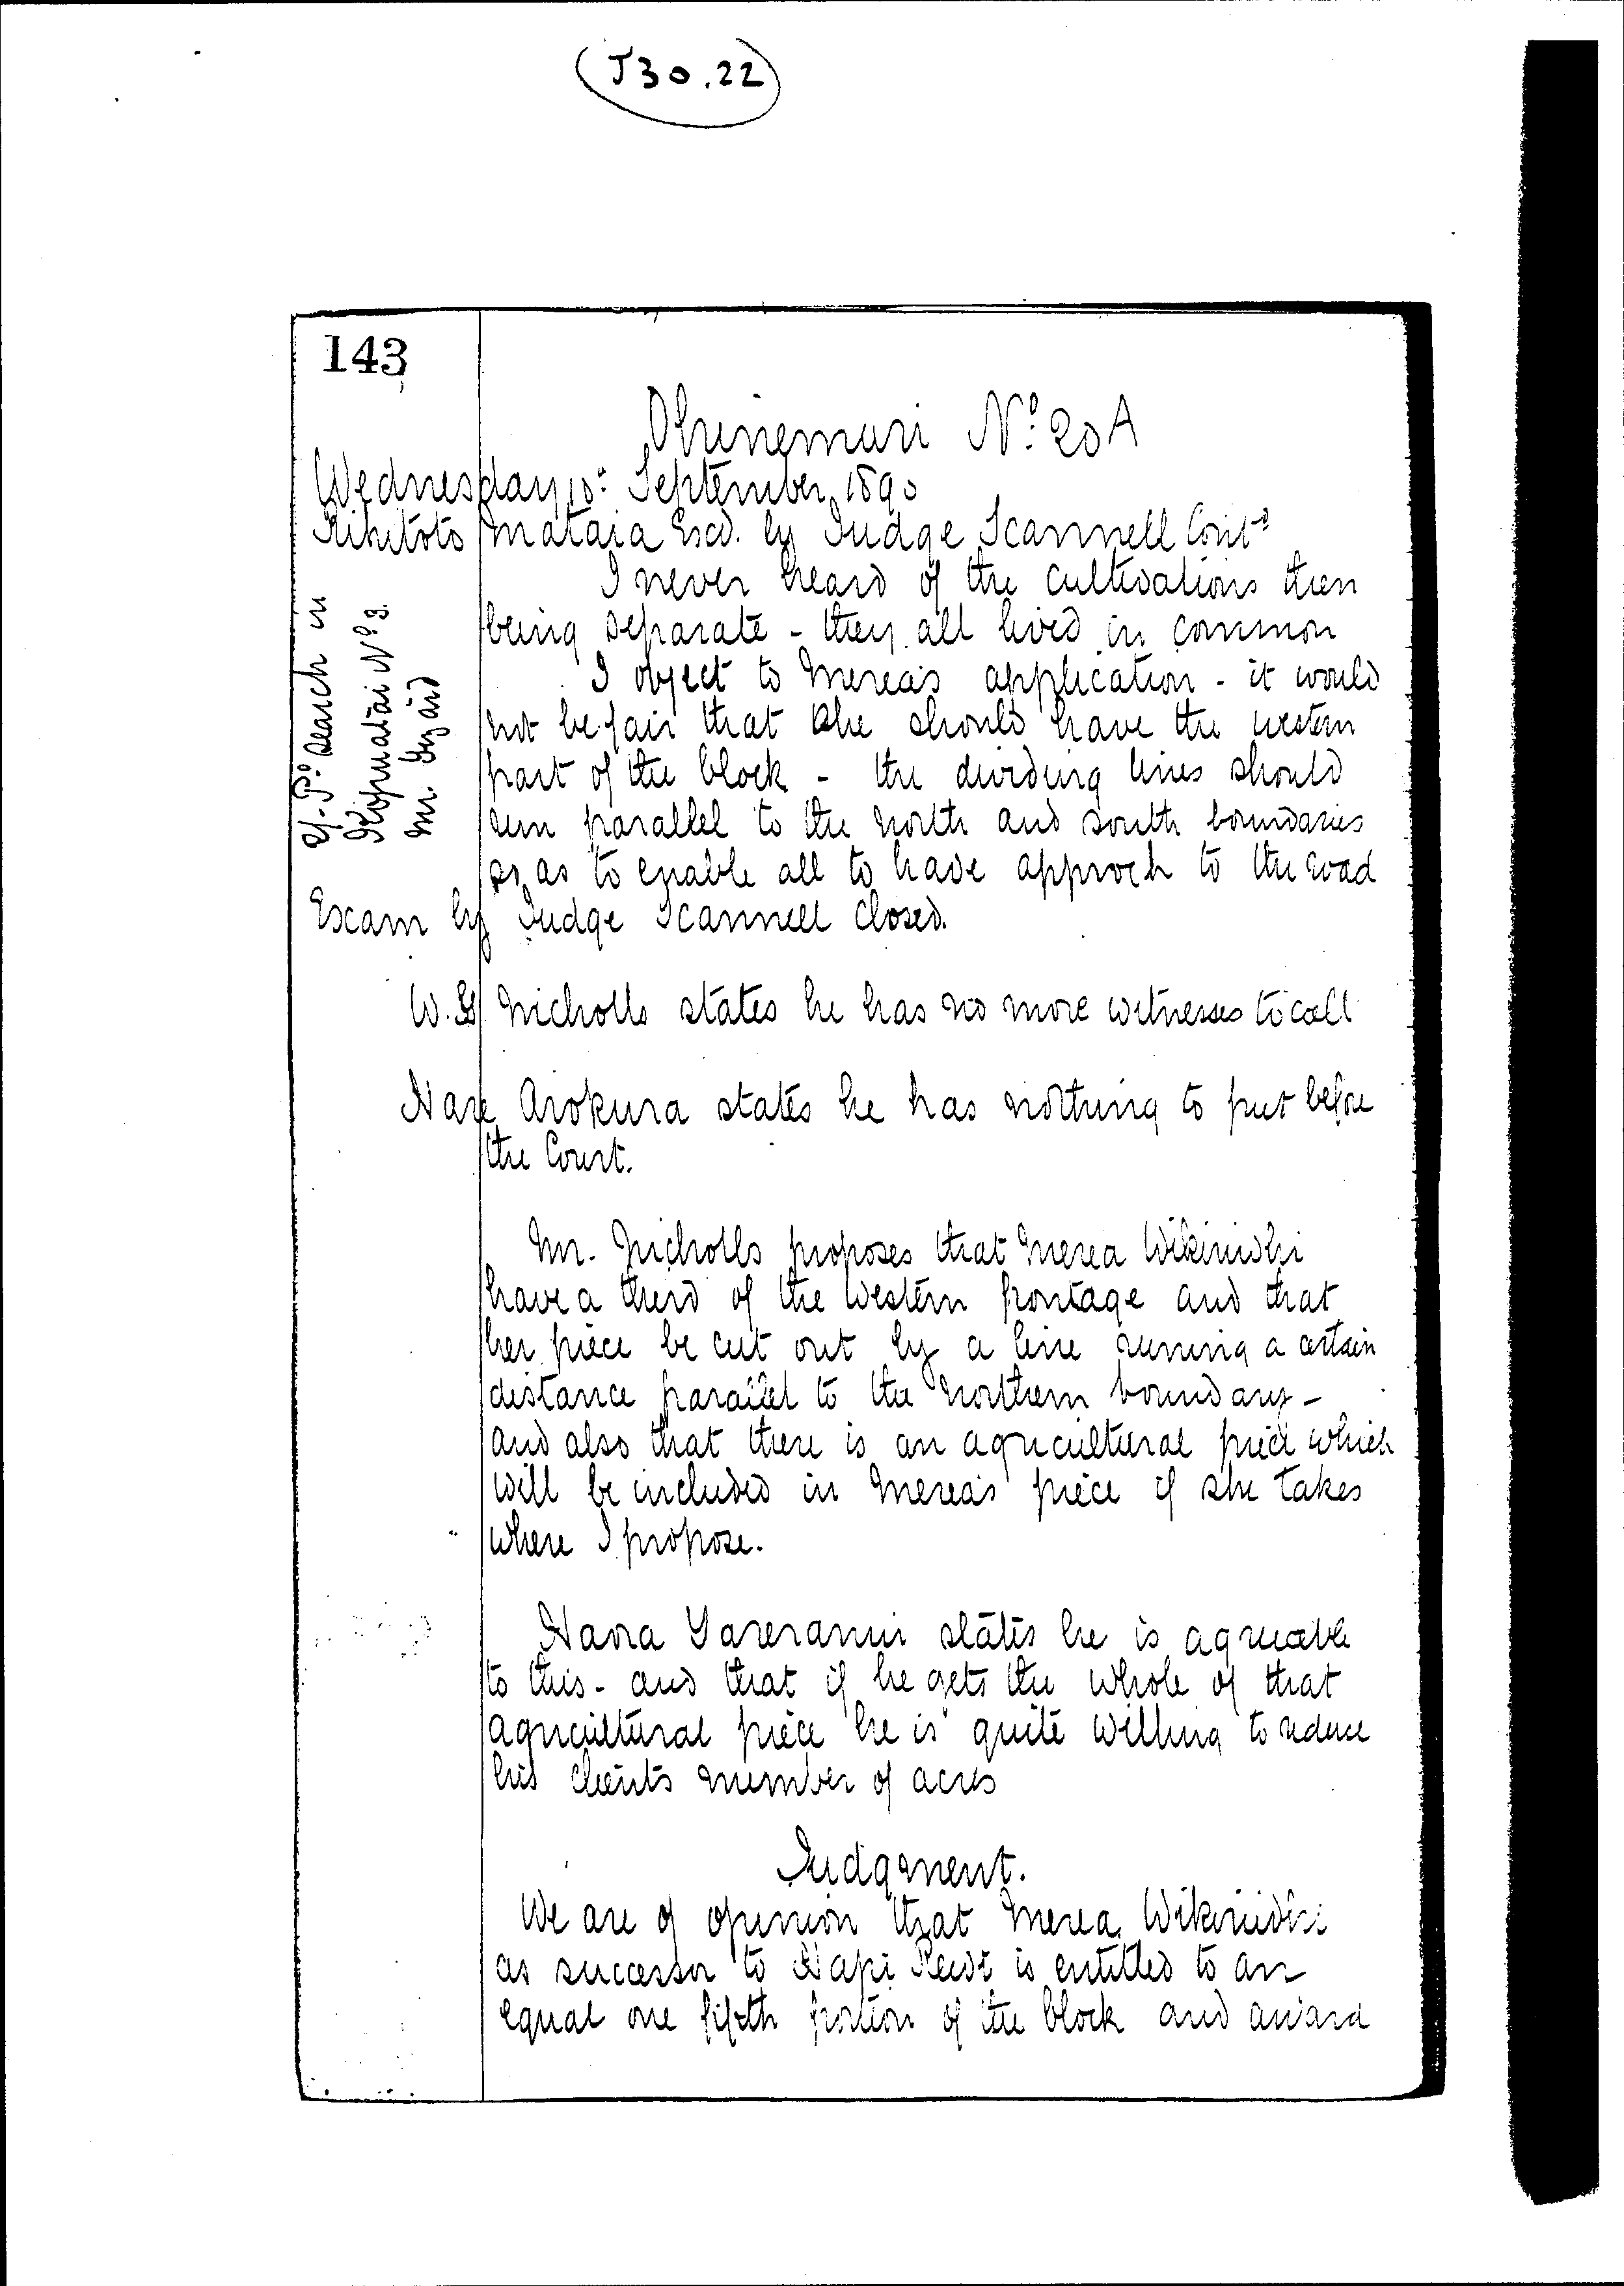 J30.22
143
Ohinemuri No 20A
Wednesday 10: September 1890
Rihitoto Mataia Exd. by Judge Scannell Contd
I never heard of the cultivations then
being separate - they all lived in common
I object to Merea's application - it would
not be fair that she should have the western
part of the block - the dividing lines should
run parallel to the north and south boundaries
so as to enable all to have approch to the road
Exam by Judge Scannell closed.
search in
Kopuatai No 3.
Mr
W.G Nicholls states he has no more witnesses to call
Hare Arokura states he has nothing to put before
the Court.
Mr. Nicholls proposes that Merea Wikiriwhi
have a third of the western frontage and that
her piece be cut out by a line running a certain
distance parallel to the northern boundary -
and also that there is an agricultural piece which
will be included in Merea's piece if she takes
where I propose.
states he is agreeable
to this - and that if he gets the whole of that
agricultural piece he is quite willing to reduce
his clients number of acres
Judgment.
We are of opinion that Merea Wikiriwhi
as successor to Hapi Rewi is entitled to an
equal one fifth portion of the block and award